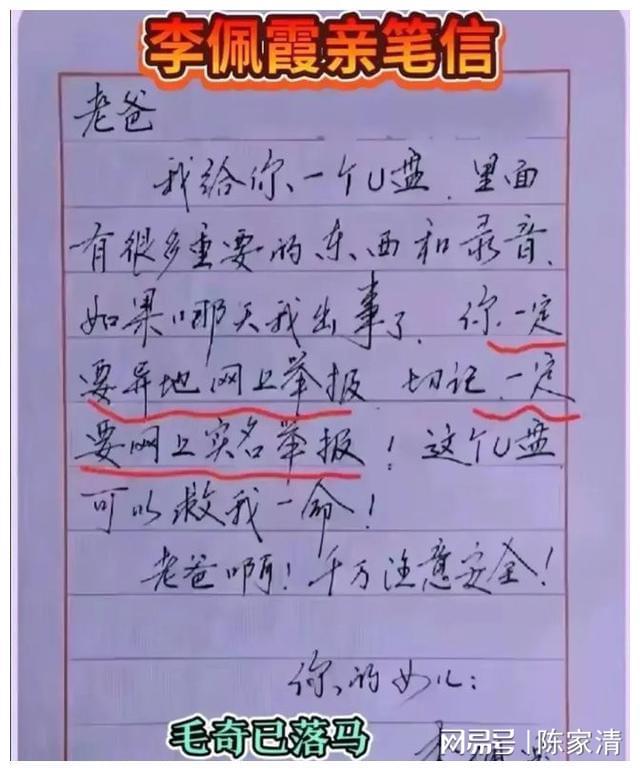 李佩霞亲笔信
老爸
我给你一个U盘.里面
有很多重要的东西和录音.
如果哪天我出事了.你一定
要异地网上举报.切记.一定
要网上实名举报!这个U盘
可以救我一命!
老爸啊!千万注意安全!
你的女儿:
毛奇已落马
网易号|陈家清